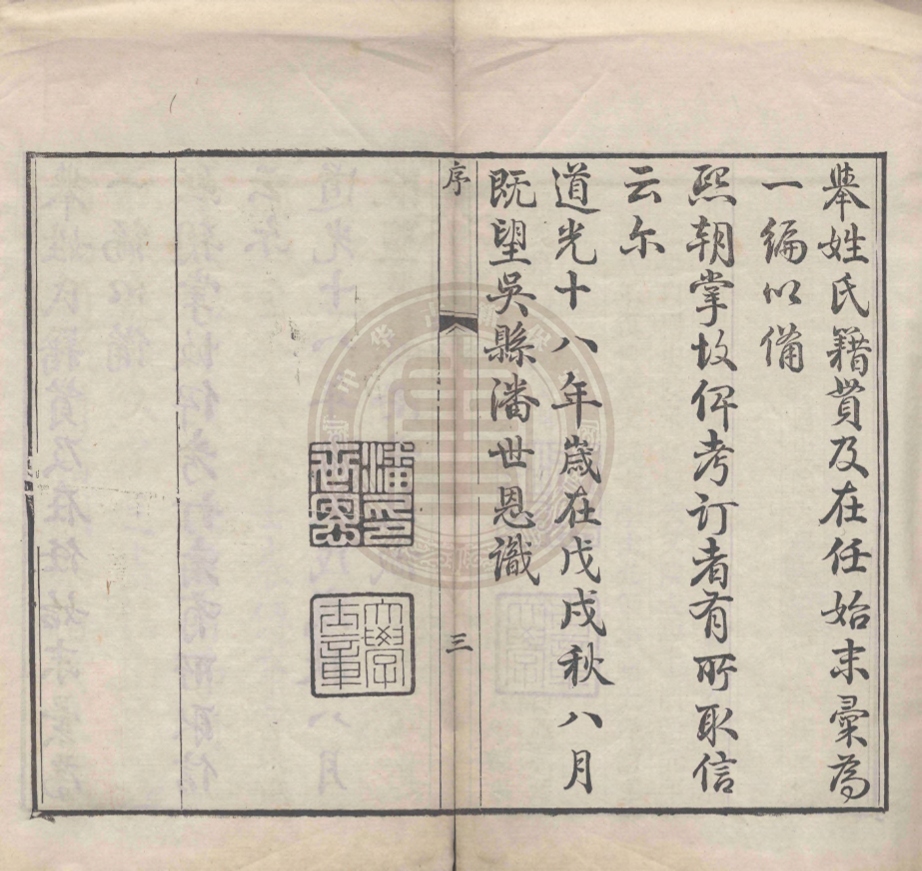 舉姓氏籍貫及在任始末彙為
一編以備
熙朝掌故俾考訂者有所取信
云尔
道光十八年歲在戊戌秋八月
既望吳縣潘世恩識
序
三
潘印世恩
大學士章